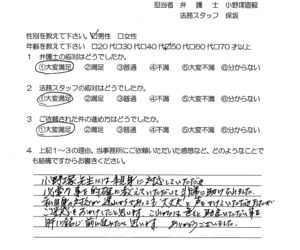 担当者 弁 護 士 小野塚直毅
法務スタッフ 保坂
性別を教えて下さい。☑男性 □女性
年齢を教えて下さい □20 □30代 □40代 ☑50代 □60代 □70才以上
1 弁護士の応対はどうでしたか。
①大変満足 ②満足 ③普通 ④不満 ⑤大変不満 ⑥分からない
2 法務スタッフの応対はどうでしたか。
①大変満足 ②満足 ③普通 ④不満 ⑤大変不満 ⑥分からない
3 ご依頼された件の進め方はどうでしたか。
①大変満足 ②満足 ③普通 ④不満 ⑤大変不満 ⑥分からない
4 上記1~3の理由、当事務所にご依頼いただいた感想など、どのようなことで
も結構ですからお書きください。
小野塚先生には親身に対応していただき
必要な事を的確に教えていただいて非常に助けられました。
大丈夫と声をかけていただき
ご迷惑をおかけしたと思います。
前に進みたいと思います ありがとうございました。